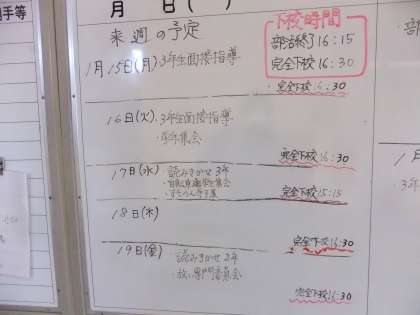 月 日( )
来週の予定
下校時間
部活終了16:15
完全下校16:30
1月15日(月) 3年生面接指導
完全下校16:30
16日(火) 3年生面接指導
・学年集会
完全下校16:30
17日(水) 読みきかせ 3年
完全下校15:15
18日(木)
完全下校16:30
19日(金) 読みきかせ 2年
・放:専門委員会
完全下校16:30